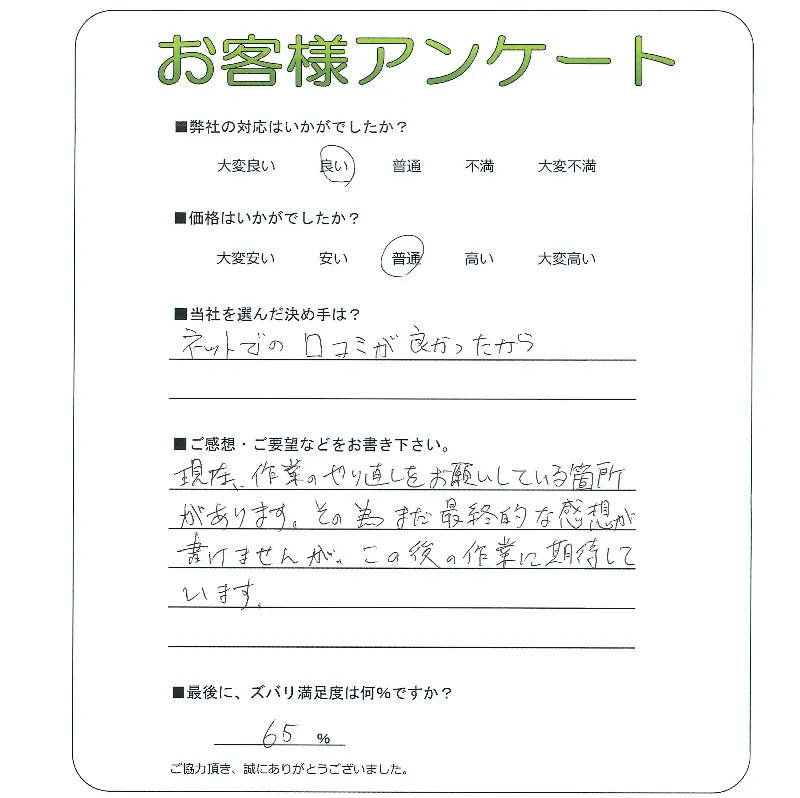 お客様アンケート
■弊社の対応はいかがでしたか？
大変良い 良い 普通 不満 大変不満
■価格はいかがでしたか？
大変安い 安い 普通 高い 大変高い
■当社を選んだ決め手は？
ネットでの口コミが良かったから
■ご感想・ご要望などをお書き下さい。
現在、作業のやり直しをお願いしている箇所
があります。その為まだ最終的な感想が
書けませんが。この後の作業に期待して
います。
■最後に、ズバリ満足度は何%ですか？
65 %
ご協力頂き、誠にありがとうございました。